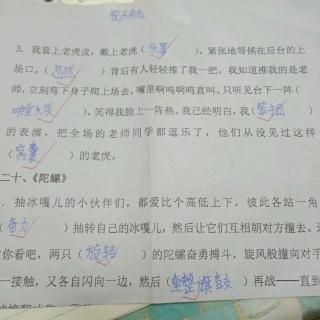 3. 我套上老虎皮，戴上老虎（头罩），紧张地等候在后台的上
场口。（忽然）背后有人轻轻推了我一把。我知道推我的是老
师，立刻弯下身子爬上场去，嘴里啊呜啊呜直叫。只听见台下一阵（
哄堂大笑），笑得我脸上一阵热。我已经明白，我（笨拙）
的表演，把全场的老师同学都逗乐了，他们从没见过这样
（窝囊）的老虎。
二十、《陀螺》
．抽冰嘎儿的小伙伴们，都爱比个高低上下，彼此各站一角
（奋力）抽转自己的冰嘎儿，然后让它们互相朝对方撞去。
你看吧，两只（旋转）的陀螺奋勇搏斗，旋风般撞向对手
一接触，又各自闪向一边，然后（重整旗鼓）再战——直到